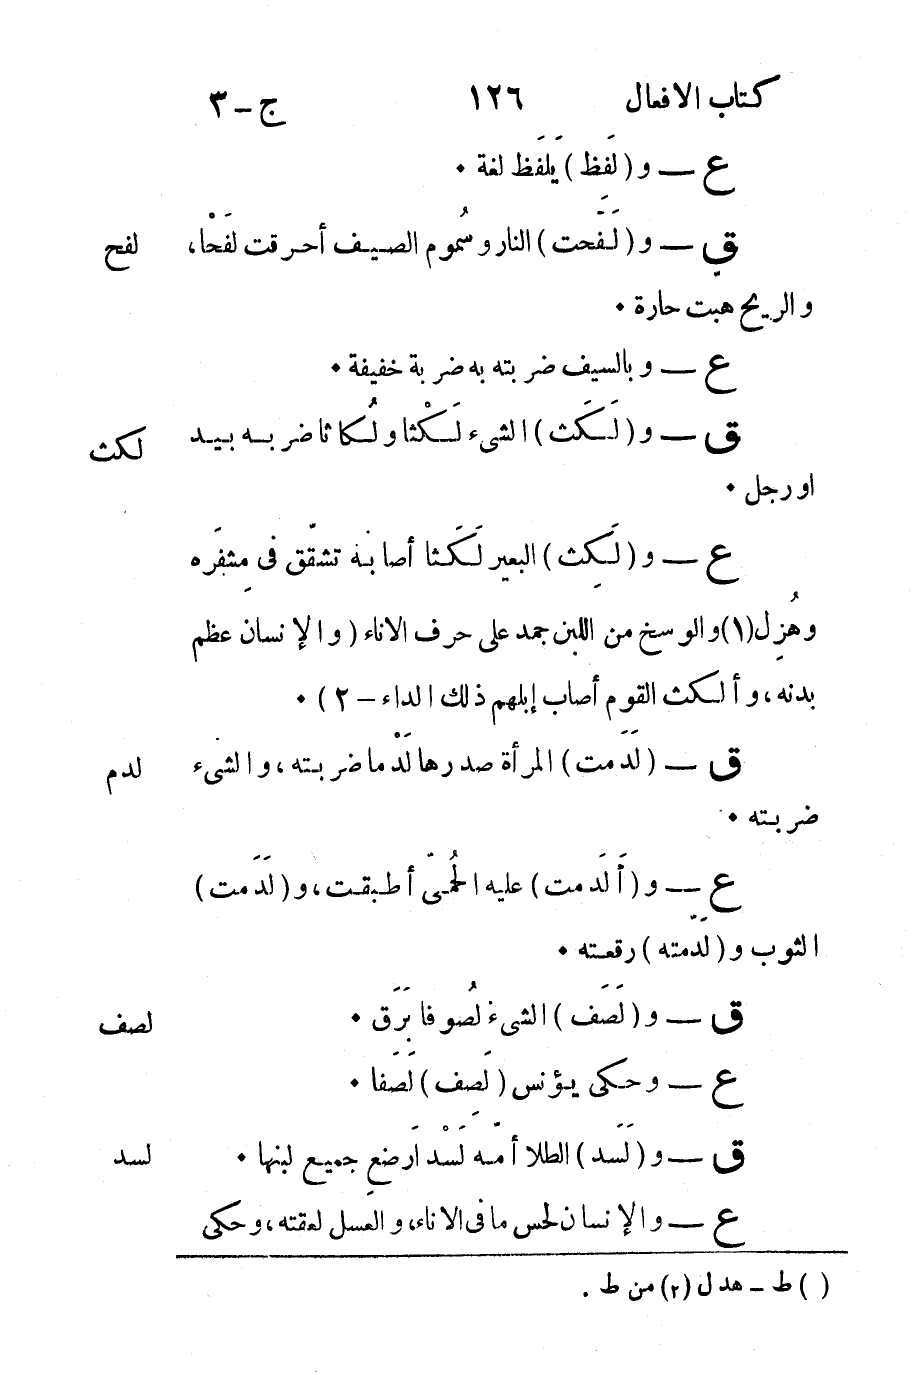 كتاب الافعال ١٢٦ ج – ٣
ع — و (لَفِظ) يَلفَظ لغة •
ق — و (لَفَحت) النار وسُموم الصيف أحرقت لَفْحا، لفح
والريح هبت حارة •
ع — وبالسيف ضربته به ضربة خفيفة •
ق — و (لَكَث) الشىء لَكْثا ولُكاثا ضربه بيد لكث
اورجل •
ع — و (لَكِث) البعير لَكَثا أصابه تشقّق فى مِشفَره
وهُزِل (١) والوسخ من اللبن جمد على حرف الاناء (والإنسان عظم
بدنه، وألكث القوم أصاب إبلهم ذلك الداء – ٢) •
ق — (لَدَمت) المرأة صدرها لَدْما ضربته، والشىء لدم
ضربته •
ع — و (أَلدَمت) عليه الحُمّى أطبقت، و (لَدَمت)
الثوب و (لدّمته) رقعته •
ق — و (لَصَف) الشىء لُصوفا بَرَق • لصف
ع — وحكى يؤنس (لَصِف) لَصَفا •
ق — و (لَسَد) الطلا أمّه لَسْدا رَضِع جميع لبنها • لسد
ع — والإنسان لحس ما فى الاناء، والعسل لعقته، وحكى
( ) ط – هدل (٢) من ط .